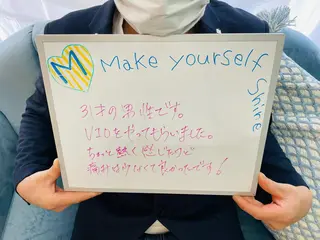 M Make yourself
Shine
31才の男性です。
VIOをやってもらいました。
ちょっと熱く感じたけど
痛みはなくて良かったです!